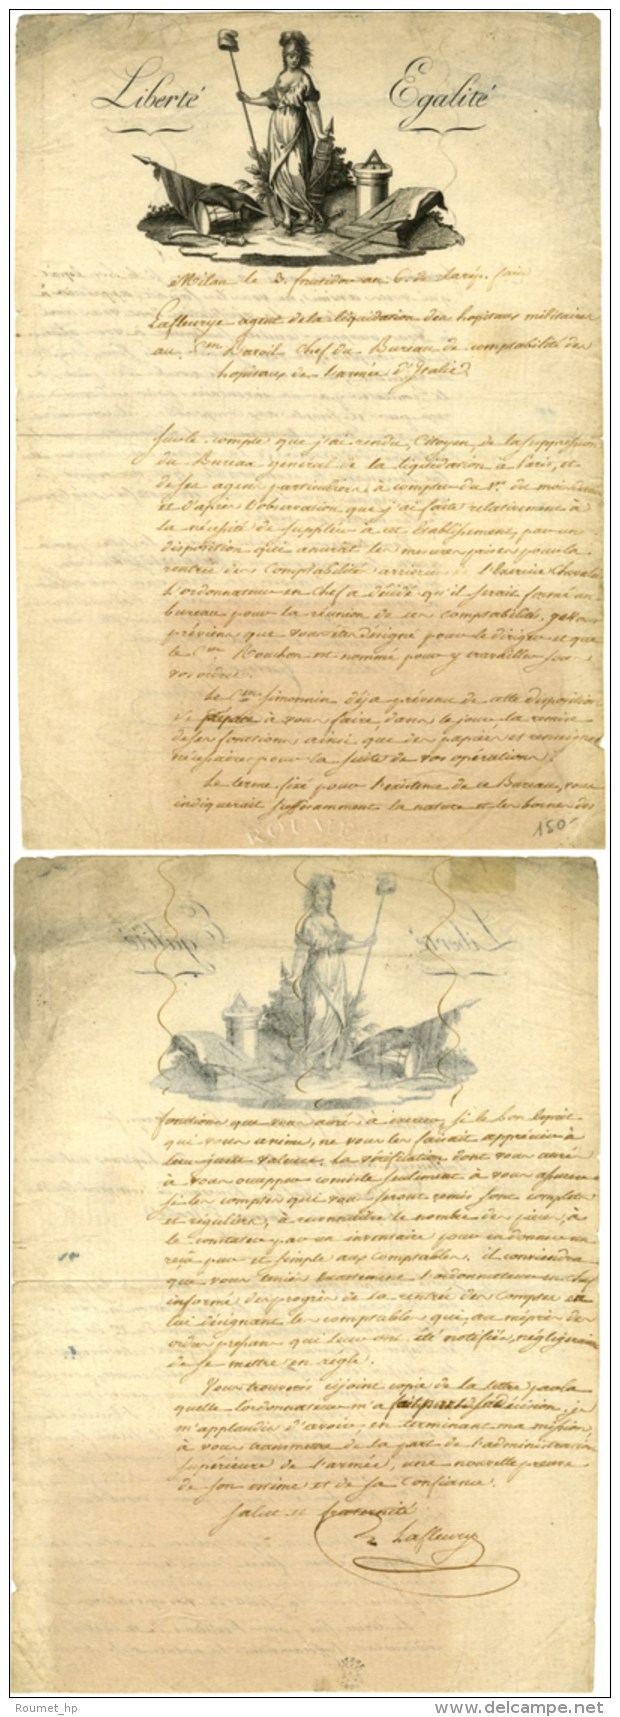 Liberté Egalité
Milan le 3. fructidor an 6. de la rép. fçaise
Lafleurye agent de la liquidation des hopitaux militaires
au Cen Chef du Bureau de comptabilité des
hopitaux de l'armée d'Italie.
Sur le compte que j'ai rendu, Citoyen, de la suppression
du Bureau général de la liquidation à Paris, et
de ses agens particuliers, à compter du 1er. du mois
et d'après l'observation que j'ai faite relativement à
la nécéssité de suppléer à cet Etablissement, par une
disposition qui assurât les mesures prises pour la
rentrée des Comptabilités arriérées de l'Exercice
l'ordonnateur en chef a décidé qu'il serait formé un
bureau pour la réunion de ces comptabilités. je vous
préviens que vous êtes désigné pour le diriger et que
le Cen Rouchon est nommé pour y travailler sous
vos ordres.
Le Cen Simonnin déja prévenu de cette disposition
à vous faire, dans le jour, la remise
de ses fonctions, ainsi que des papiers et renseignemens
nécéssaires pour la suite de vos opérations.
Le terme fixé pour l'existence de ce Bureau, vous
indiquerait suffisamment la nature et les bornes des
150-
fonctions que vous aurés à exercer, si le bon esprit
qui vous anime, ne vous les faisait apprécier à
leur juste valeur. la vérification dont vous aurés
à vous occuper consiste seulement à vous assurer
si les comptes qui vous seront remis sont complets
et réguliers, à reconnaitre le nombre des pièces, à
le constater par un inventaire pour en donner un
reçu pur et simple aux comptables. il conviendra
que vous teniés exactement l'ordonnateur en chef
informé des progrès de la rentrée des Comptes en
lui désignant les comptables qui, au mépris des
ordres précis qui leur ont été notifiés, négligeraient
de se mettre en règle.
Vous trouverés cijoint copie de la lettre par la
quelle l'ordonnateur m'a fait part de sa décision. je
m'applaudis d'avoir, en terminant ma mission,
à vous transmettre de la part de l'administration
supérieure de l'armée, une nouvelle preuve
de son estime et de sa confiance.
Salut et fraternité
Lafleurye
Roumet_hp
delcampe.net